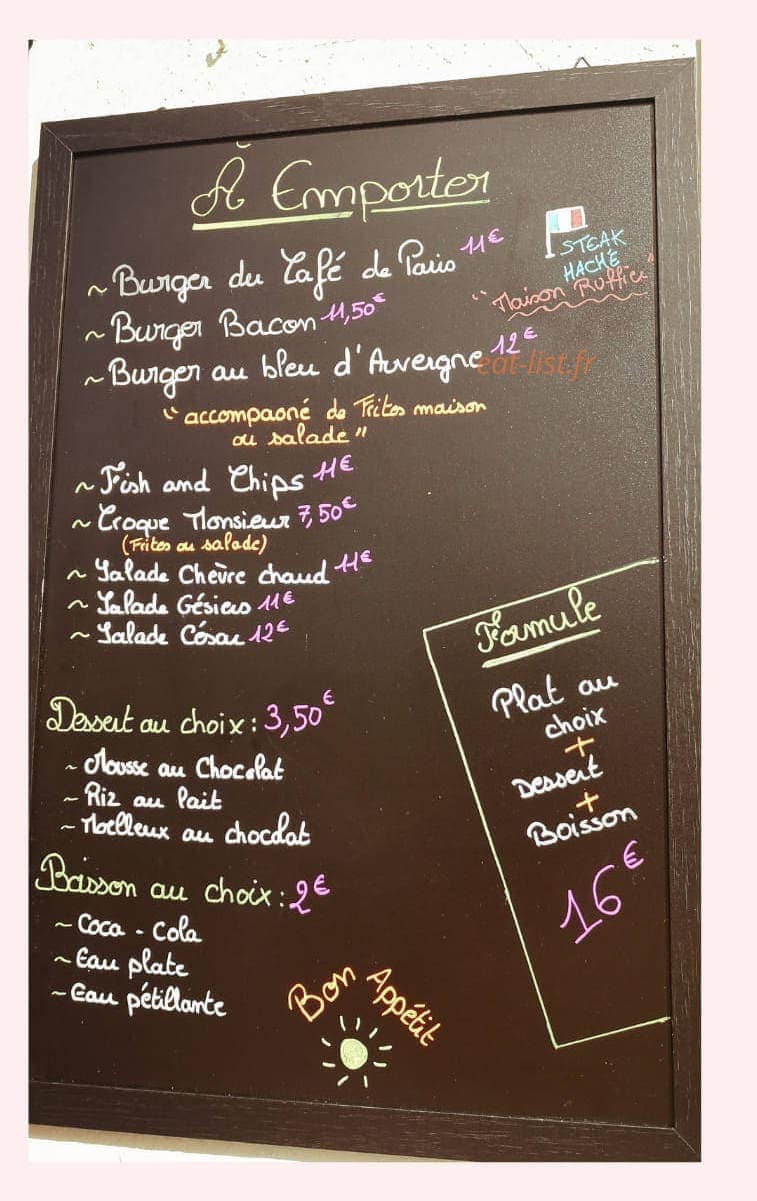 À Emporter
~ Burger du Café de Paris 11€
STEAK
HACHÉ
"Maison Ruffier"
~ Burger Bacon 11,50€
~ Burger au bleu d'Auvergne 12€
eat-list.fr
"accompagné de Frites maison
ou salade"
~ Fish and Chips 11€
~ Croque Monsieur 7,50€
(Frites ou salade)
~ Salade Chèvre chaud 11€
~ Salade Gésiers 11€
~ Salade César 12€
Dessert au choix : 3,50€
~ Mousse au Chocolat
~ Riz au lait
~ Moelleux au chocolat
Boisson au choix : 2€
~ Coca - Cola
~ Eau plate
~ Eau pétillante
Formule
Plat au
choix
+
Dessert
+
Boisson
16€
Bon Appétit